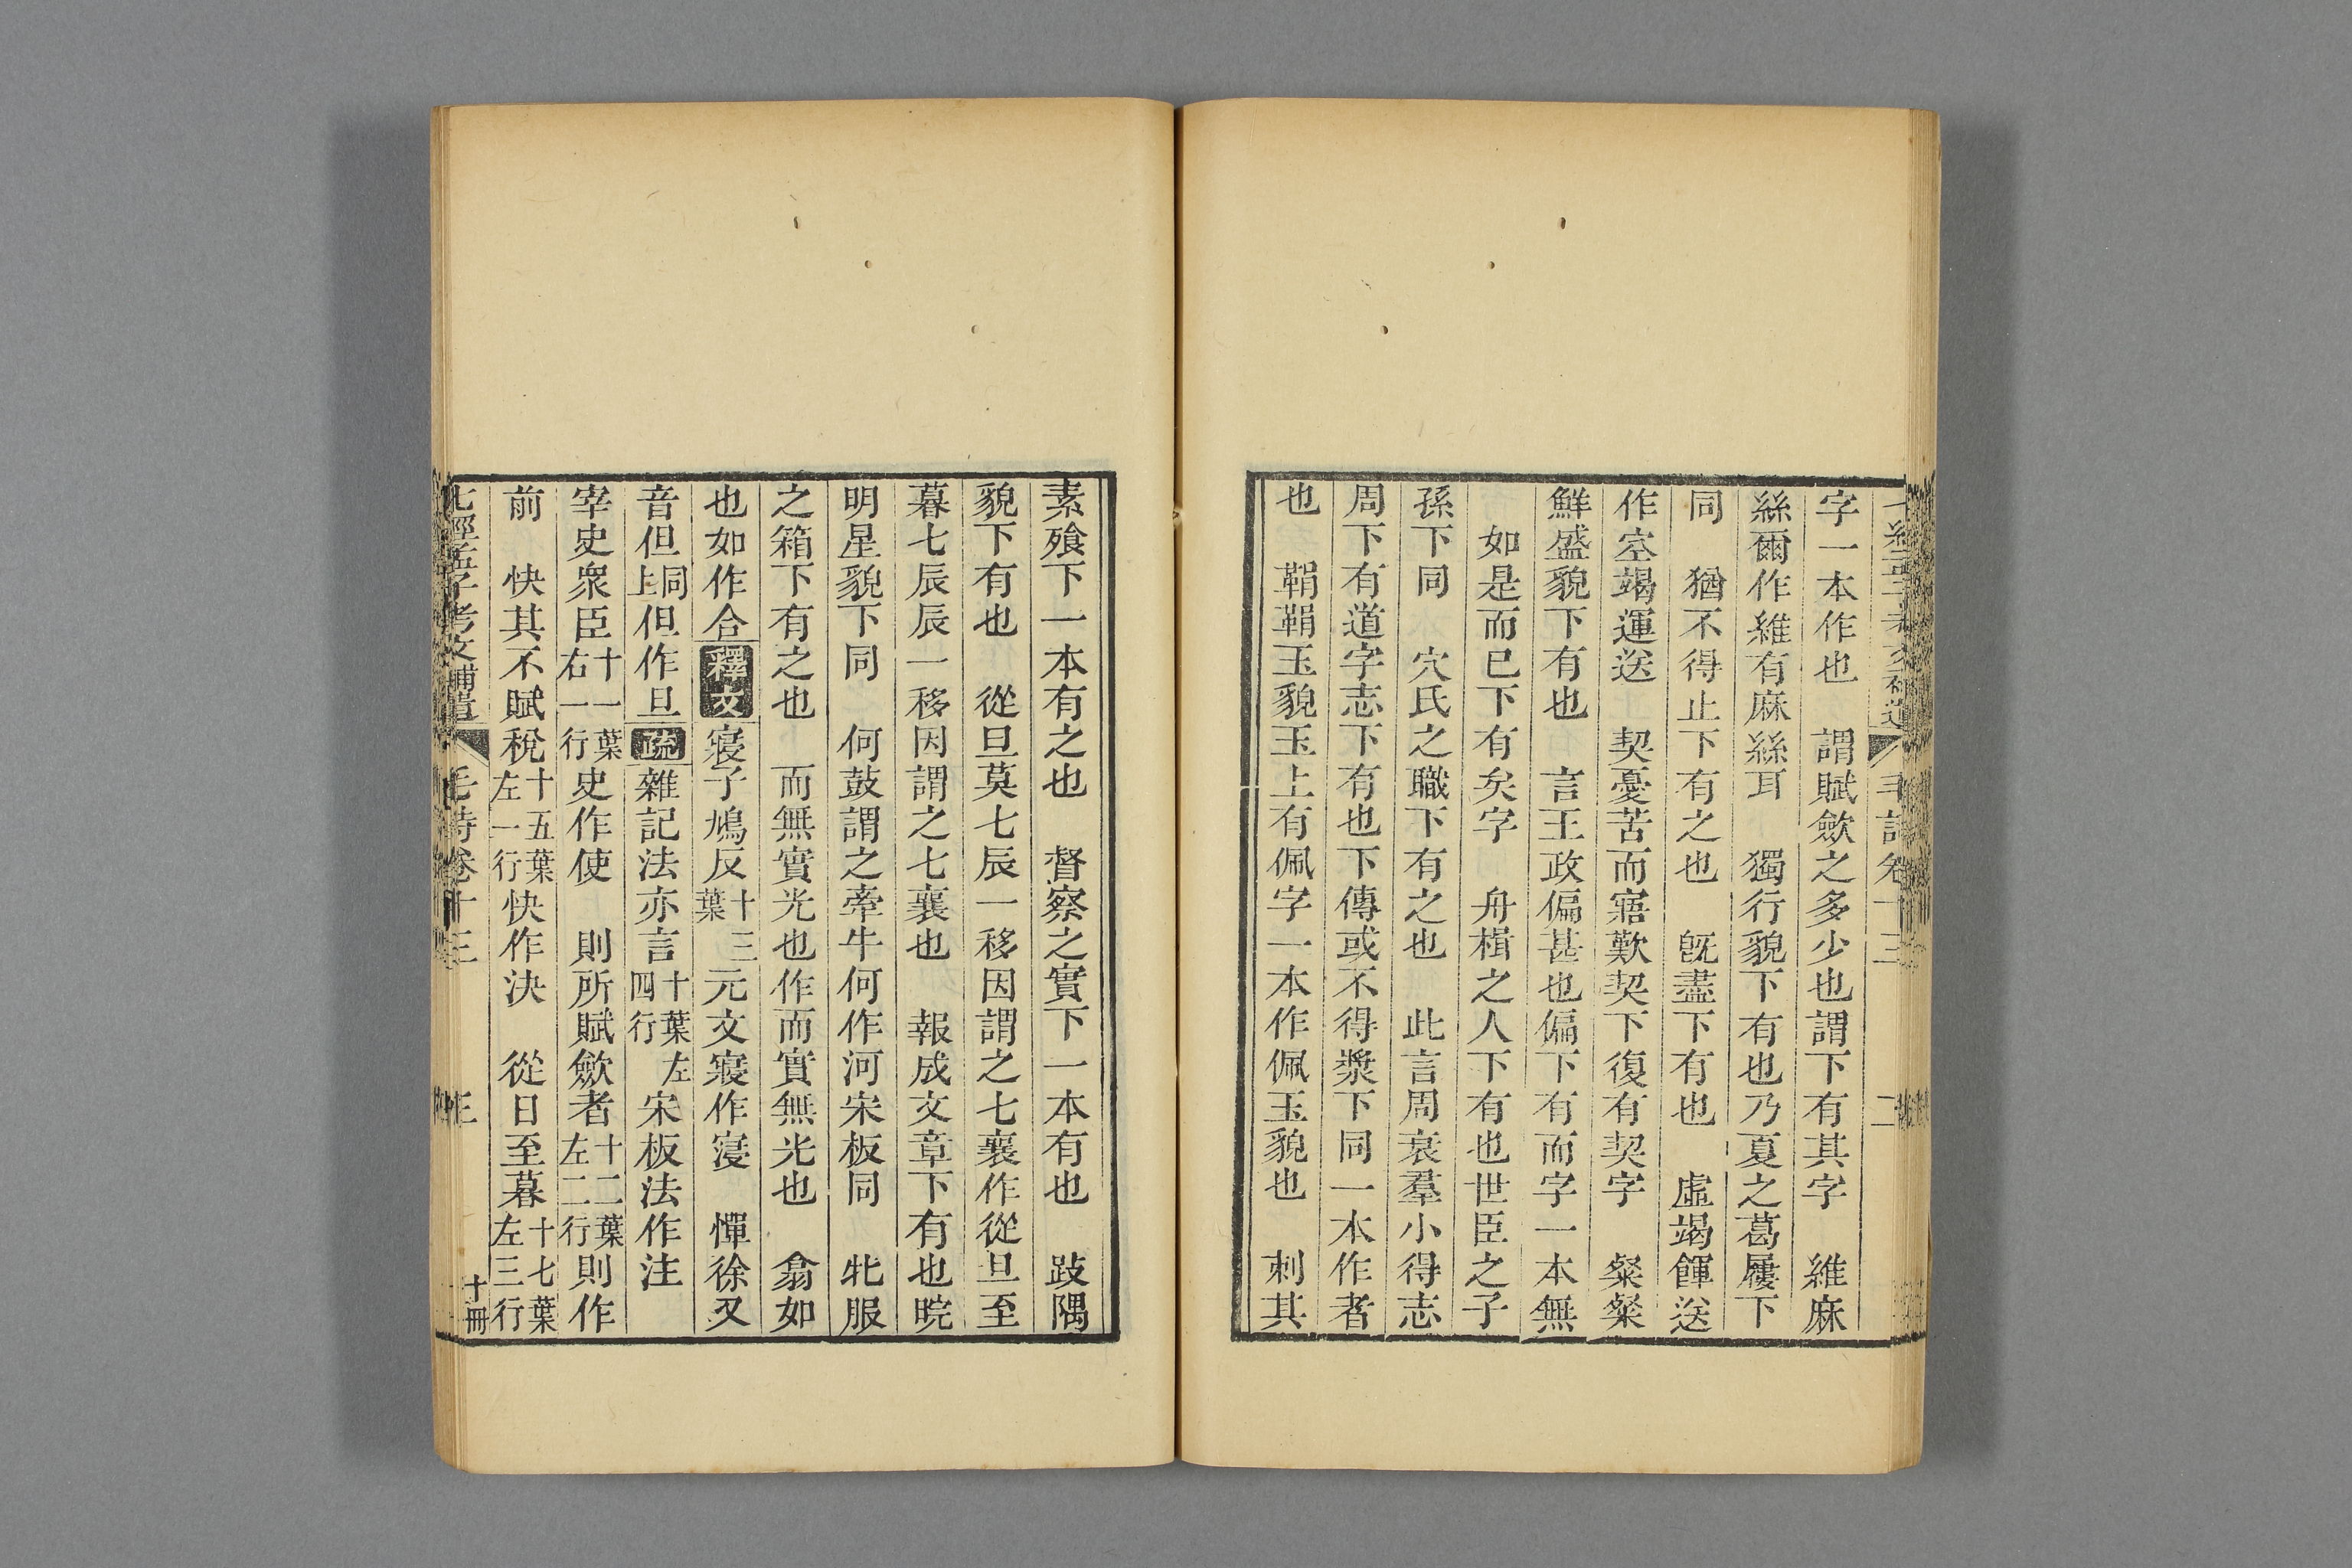 字一本作也　謂賦斂之多少也謂下有其字　維麻
絲爾作維有麻絲耳　獨行貌下有也乃夏之葛屨下
同　猶不得止下有之也　旣盡下有也　虛竭餫送
作空竭運送　契憂苦而寤歎契下復有契字　粲粲
鮮盛貌下有也　言王政偏甚也偏下有而字一本無
如是而已下有矣字　舟楫之人下有也世臣之子
孫下同　穴氏之職下有之也　此言周衰羣小得志
周下有道字志下有也下傳或不得漿下同一本作者
也　鞙鞙玉貌玉上有佩字一本作佩玉貌也　刺其
素飧下一本有之也　督察之實下一本有也　跂隅
貌下有也　從旦莫七辰一移因謂之七襄作從旦至
暮七辰辰一移因謂之七襄也　報成文章下有也睆
明星貌下同　何鼓謂之牽牛何作河宋板同　牝服
之箱下有之也　而無實光也作而實無光也　翕如
也如作合釋文寖子鴆反十三葉元文寖作寑　憚徐又
音但同上但作旦疏雜記法亦言十葉左四行宋板法作注
宰史衆臣十一葉右一行史作使　則所賦斂者十二葉左二行則作
前　快其不賦稅十五葉左一行快作決　從日至暮十七葉左三行
七經孟子考文補遺　毛詩卷十三　三　十冊